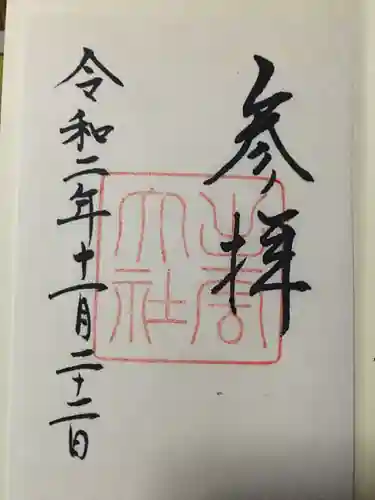 参拝
出雲
大社
令和二年十一月二十二日